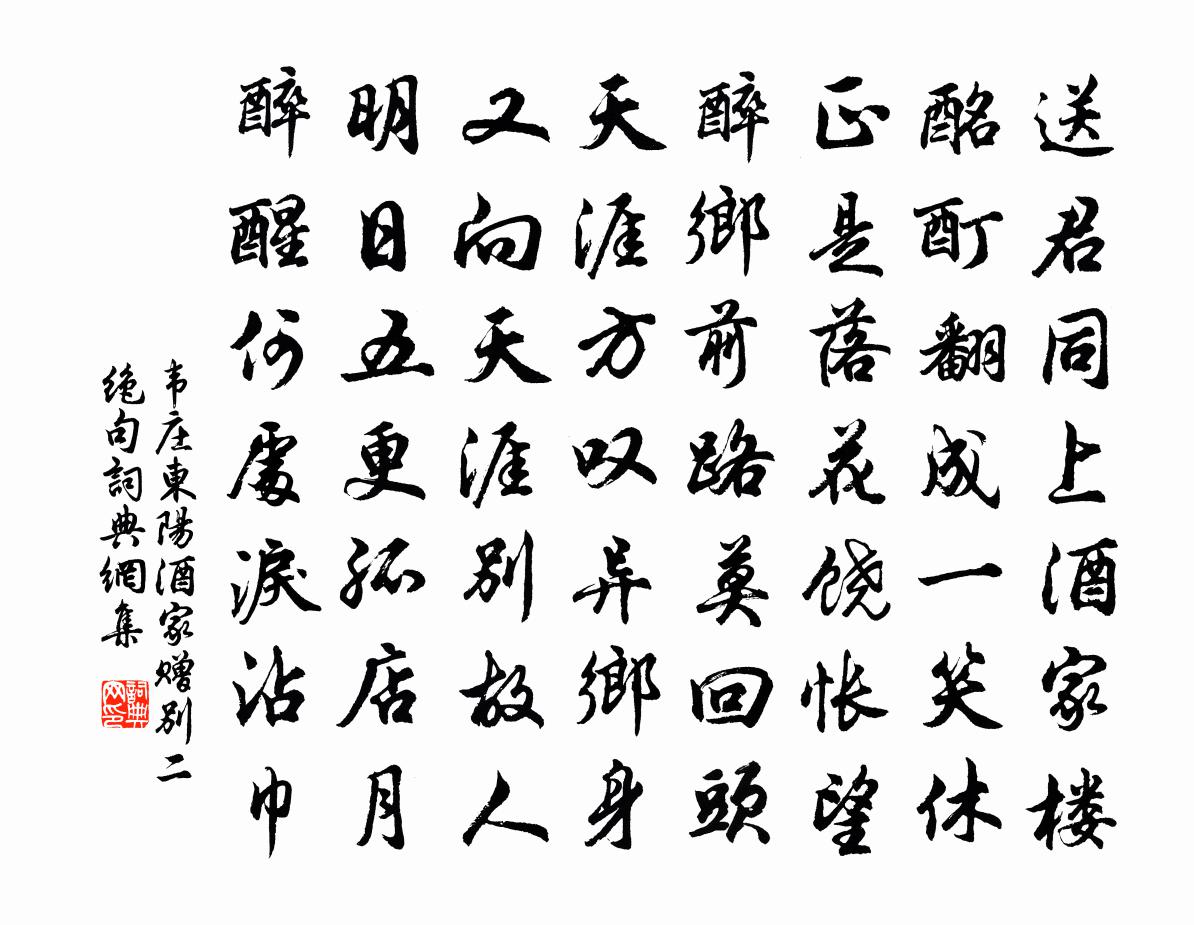 送君同上酒家楼
酩酊翻成一笑休
正是落花饶怅望
醉鄉前路莫回頭
天涯方叹异鄉身
又向天涯别故人
明日五更孤店月
醉醒何處淚沾巾
韦庄東陽酒家赠别二
绝句詞典網集
詞典
网印